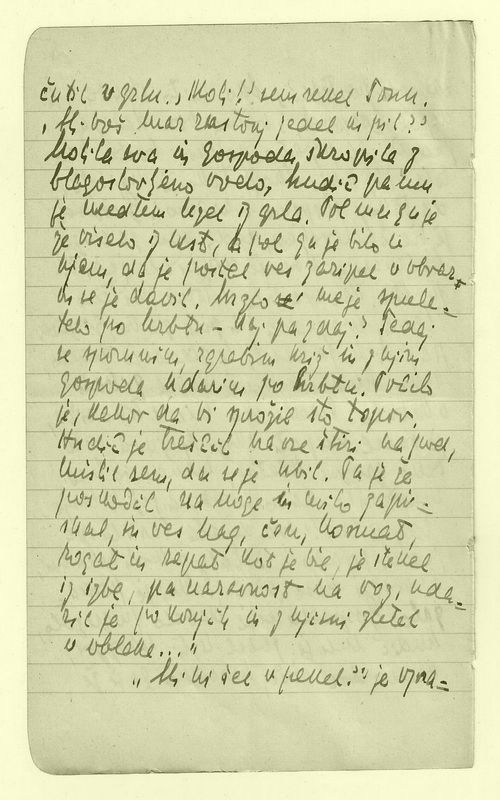 čutil v grlu. ,Moli!' sem rekel Tonu.
,Ali boš kar zastonj jedel in pil?'
Molila sva in gospoda škropila z
blagoslovljeno vodo, hudič pa mu
je medtem lezel iz grla. Pol mu ga je
že viselo iz ust, a pol ga je bilo v
njem, da je postal ves zaripel v obraz
in se je davil. Mrzlo me je spele-
telo po hrbtu – kaj pa zdaj? Tedaj
se spomnim, zgrabim križ in z njim
gospoda udarim po hrbtu. Počilo
je, kakor da bi sprožil sto topov.
Hudič je treščil na vse štiri na pod,
mislil sem, da se je ubil. Pa je že
poskočil na noge in milo zapi-
skal, in ves nag, črn, kosmat,
rogat in repat kot je bil, je stekel
iz izbe, pa naravnost na voz, uda-
ril je po konjih in z njimi zletel
v oblake..."
„Ali ni šel v pekel?" je vpra-